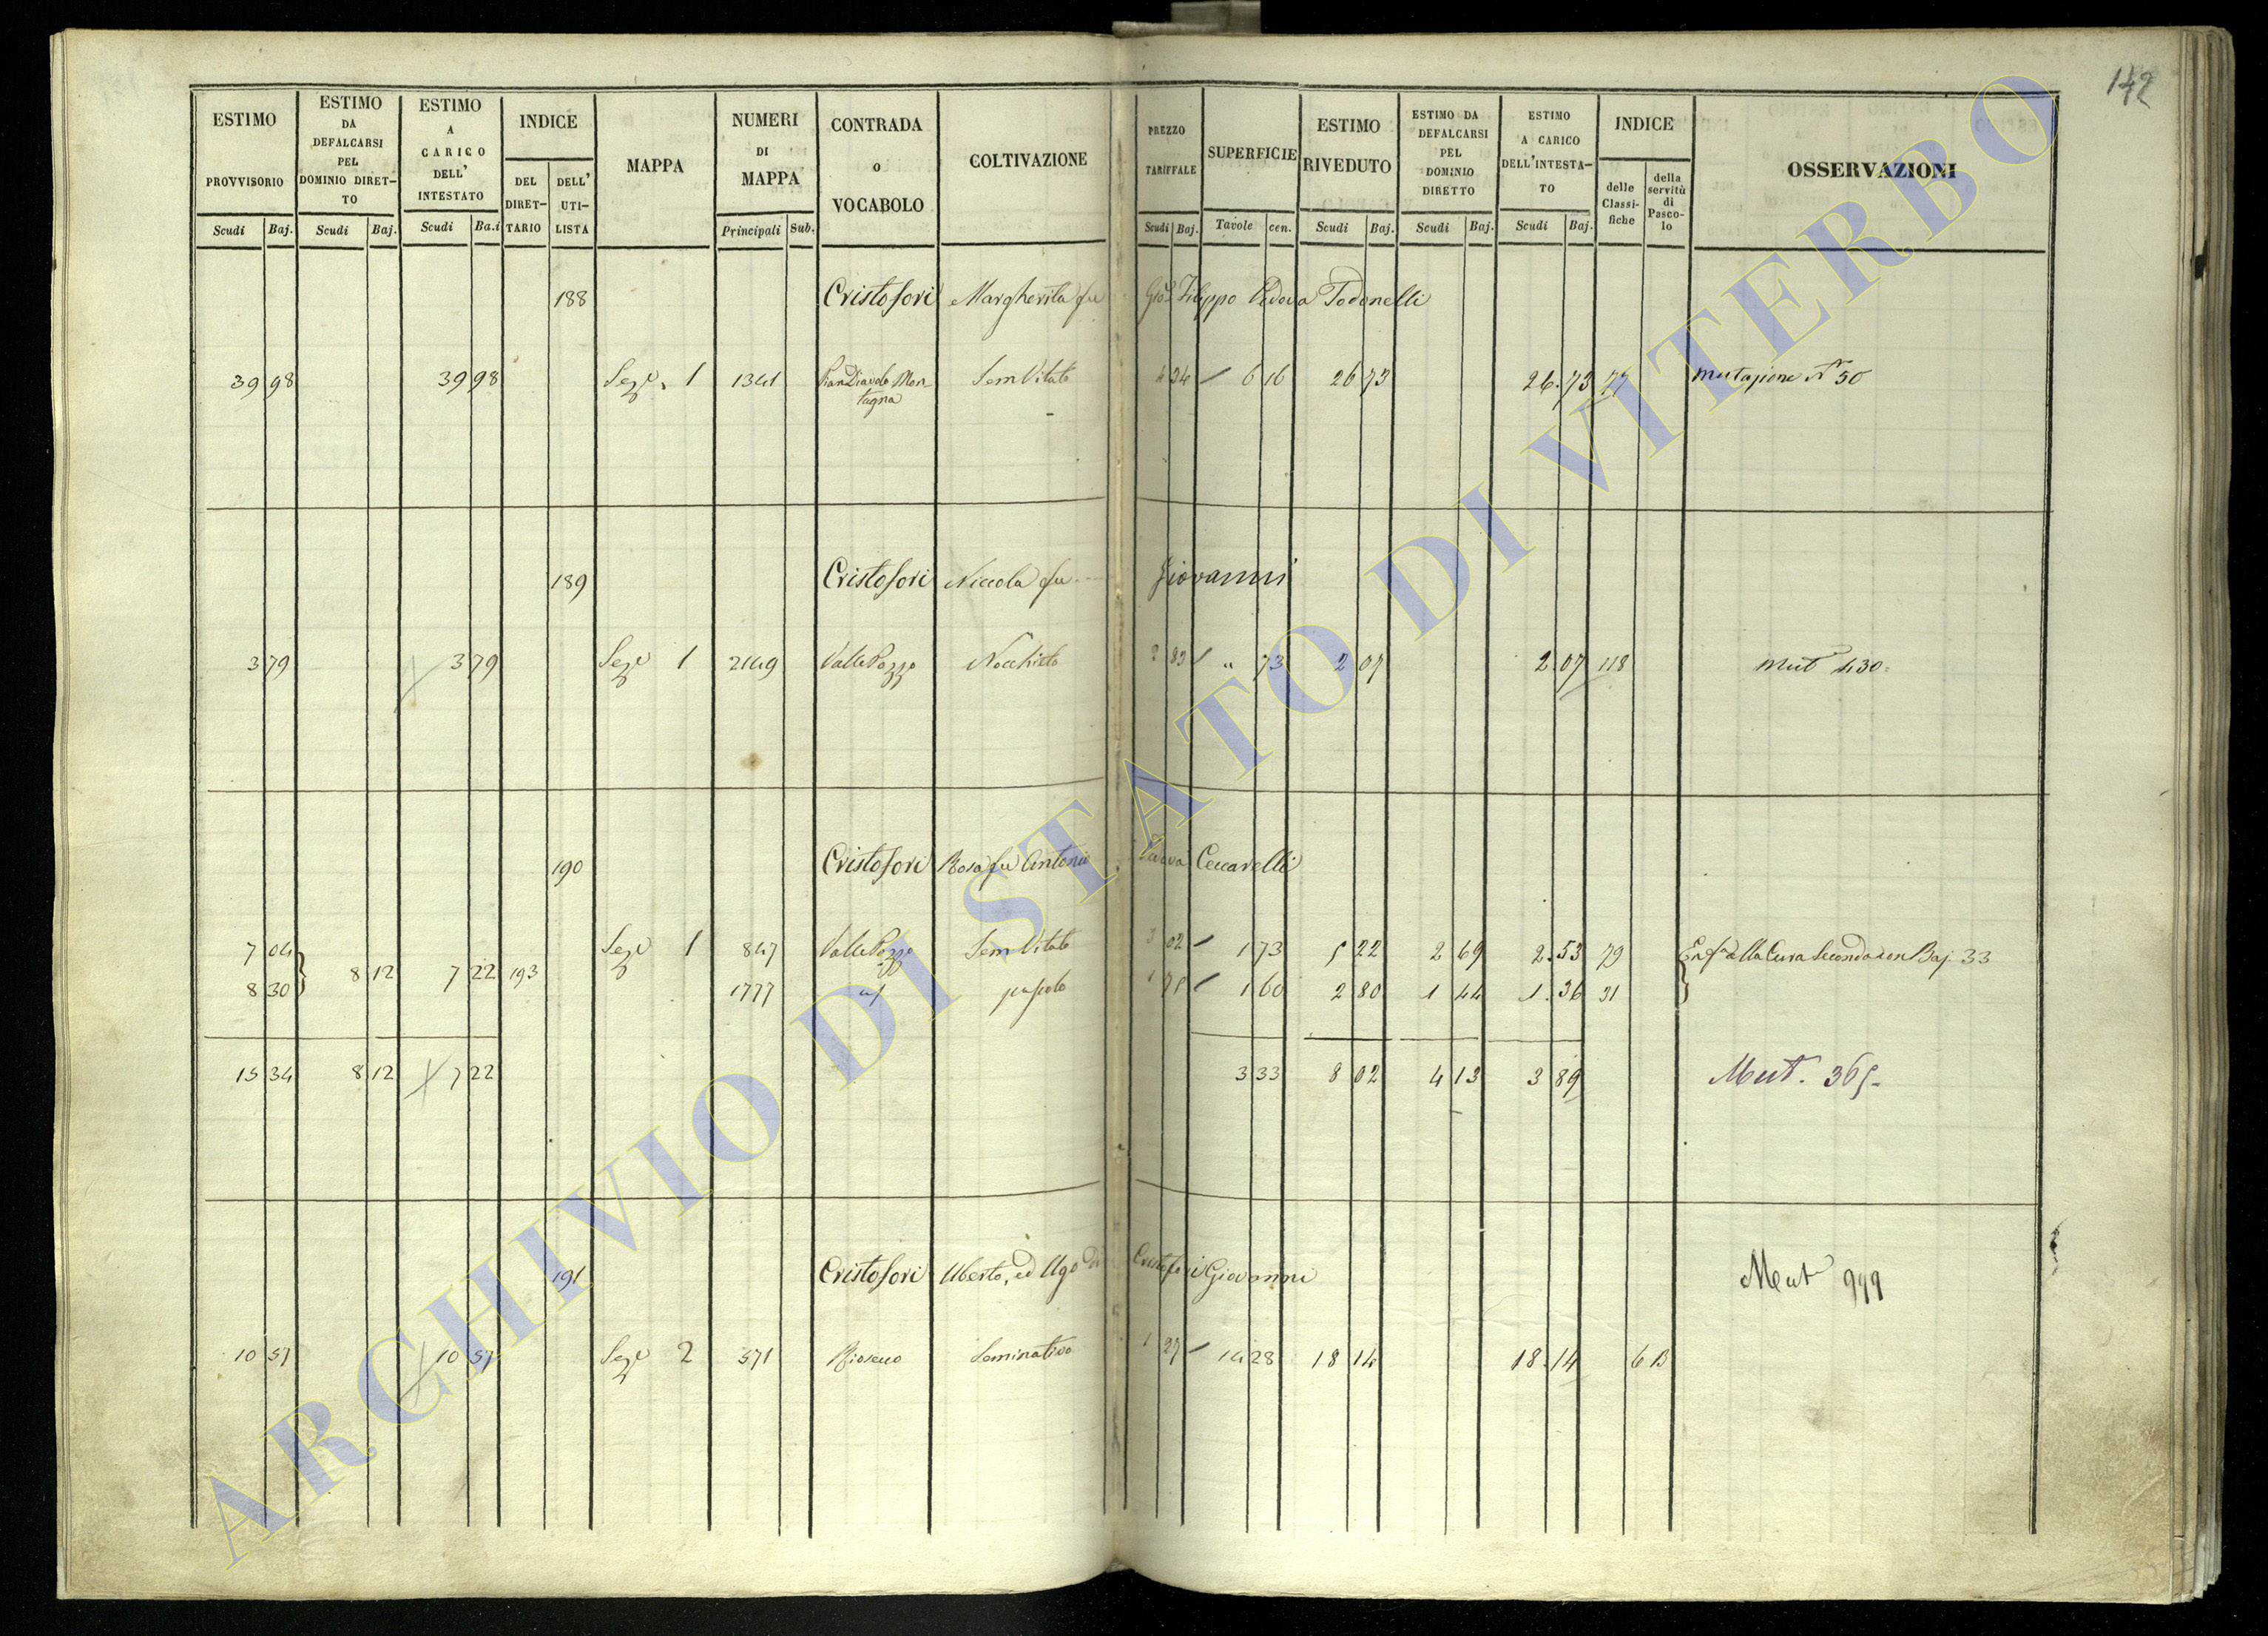 142
ESTIMO PROVVISORIO Scudi Baj.
ESTIMO DA DEFALCARSI PEL DOMINIO DIRET-TO Scudi Baj.
ESTIMO A CARICO DELL' INTESTATO Scudi Ba.i
INDICE DEL DIRET-TARIO DELL' UTI-LISTA
MAPPA
NUMERI DI MAPPA Principali Sub.
CONTRADA O VOCABOLO
COLTIVAZIONE
PREZZO TARIFFALE Scudi Baj.
SUPERFICIE Tavole cen.
ESTIMO RIVEDUTO Scudi Baj.
ESTIMO DA DEFALCARSI PEL DOMINIO DIRETTO Scudi Baj.
ESTIMO A CARICO DELL'INTESTA-TO Scudi Baj.
INDICE delle Classi-fiche della servitù di Pasco-lo
OSSERVAZIONI
188 Cristofori Margherita fu Gio. Filippo Vedova Todonelli
39 98 39 98 Seze. 1 1341 Pian Diavolo Mon-
tagna
Sem Vitato 4 34 6 16 26 73 26. 73 77 Mutazione N° 50
189 Cristofori Niccola fu Giovanni
3 79 3 79 Seze 1 2149 Valle Pozzo Nocchieto 2 83 " 73 2 07 2. 07 118 Mut 430
190 Cristofori Rosa fu Antonio Vedova Ceccarelli
7 04 Seze 1 847 Valle Pozzo Sem Vitato 3 02 1 73 5 22 2 69 2. 53 79 Enfa alla Cura Seconda con Baj. 33
8 12 7 22 193
8 30 1777 id pascolo 1 75 1 60 2 80 1 44 1. 36 31
15 34 8 12 7 22 3 33 8 02 4 13 3 89 Mut. 365
191 Cristofori Uberto, ed Ugo di Cristofori Giovanni Mut 999
10 57 10 57 Seze 2 571 Riosecco Seminativo 1 27 14 28 18 14 18. 14 6 B
ARCHIVIO DI STATO DI VITERBO